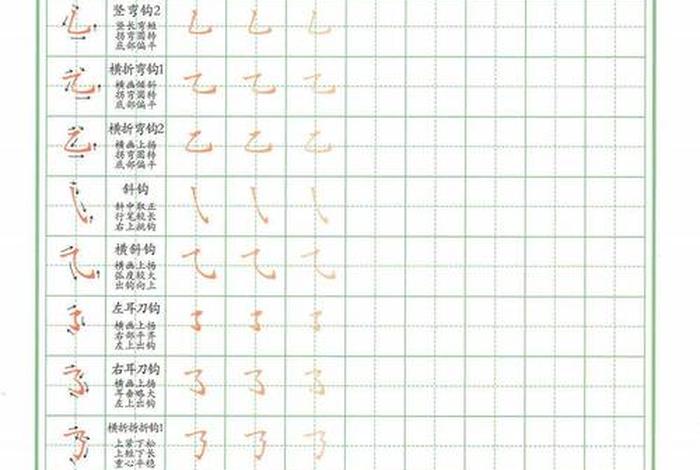 竖弯钩2
竖长弯短
拐弯圆转
底部偏平
横折弯钩1
横画倾斜
拐弯圆转
底部偏平
横折弯钩2
横画上扬
拐弯圆转
底部偏平
斜钩
斜中取正
行笔较长
右上挑钩
横斜钩
横画上扬
弧度较大
出钩向上
左耳刀钩
横画上扬
右部平齐
左上出钩
右耳刀钩
横画上扬
耳垂略大
左上出钩
横折折折钩1
上紧下松
上短下长
重心平稳